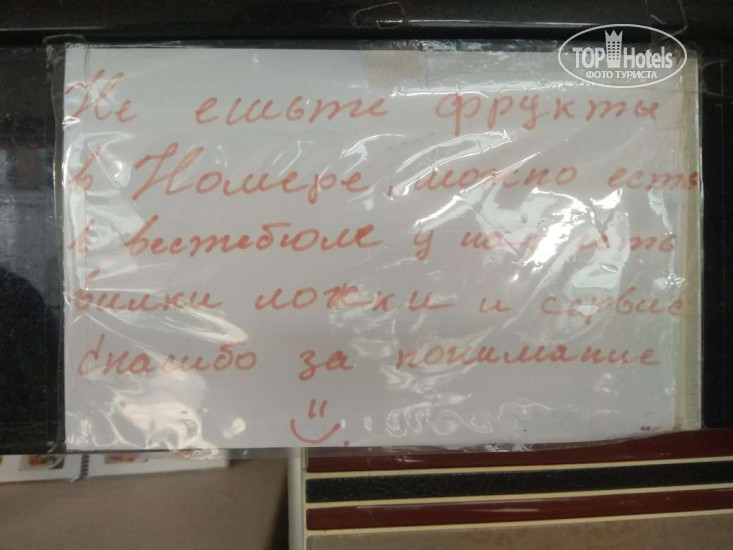 TOP Hotels
ФОТО ТУРИСТА
Не ешьте фрукты
в Номере, можно есть
в вестебюле у нас есть
вилки ложки и сервис
спасибо за понимание